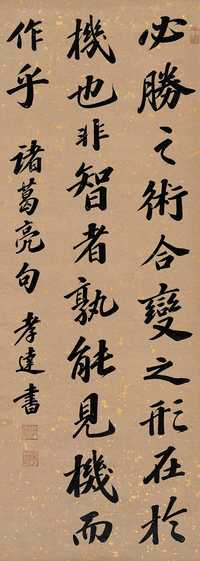 必勝之術合變之形在於
機也非智者孰能見機而
作乎
諸葛亮句 孝達書